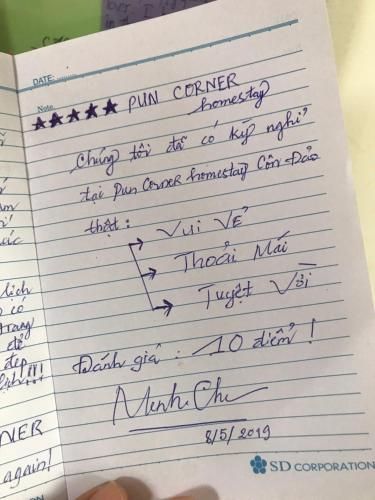 DATE:
Note.
★★★★★ PUN CORNER
homestay
Chúng tôi đã có kỳ nghỉ
tại Pun Corner homestay Côn Đảo
thật:
→ Vui Vẻ
→ Thoải Mái
→ Tuyệt Vời
Đánh giá: 10 điểm!
Minh Chu
8/5/2019
SD CORPORATION
lịch
có
trang
để
đẹp
lịch!!!
NER
again!